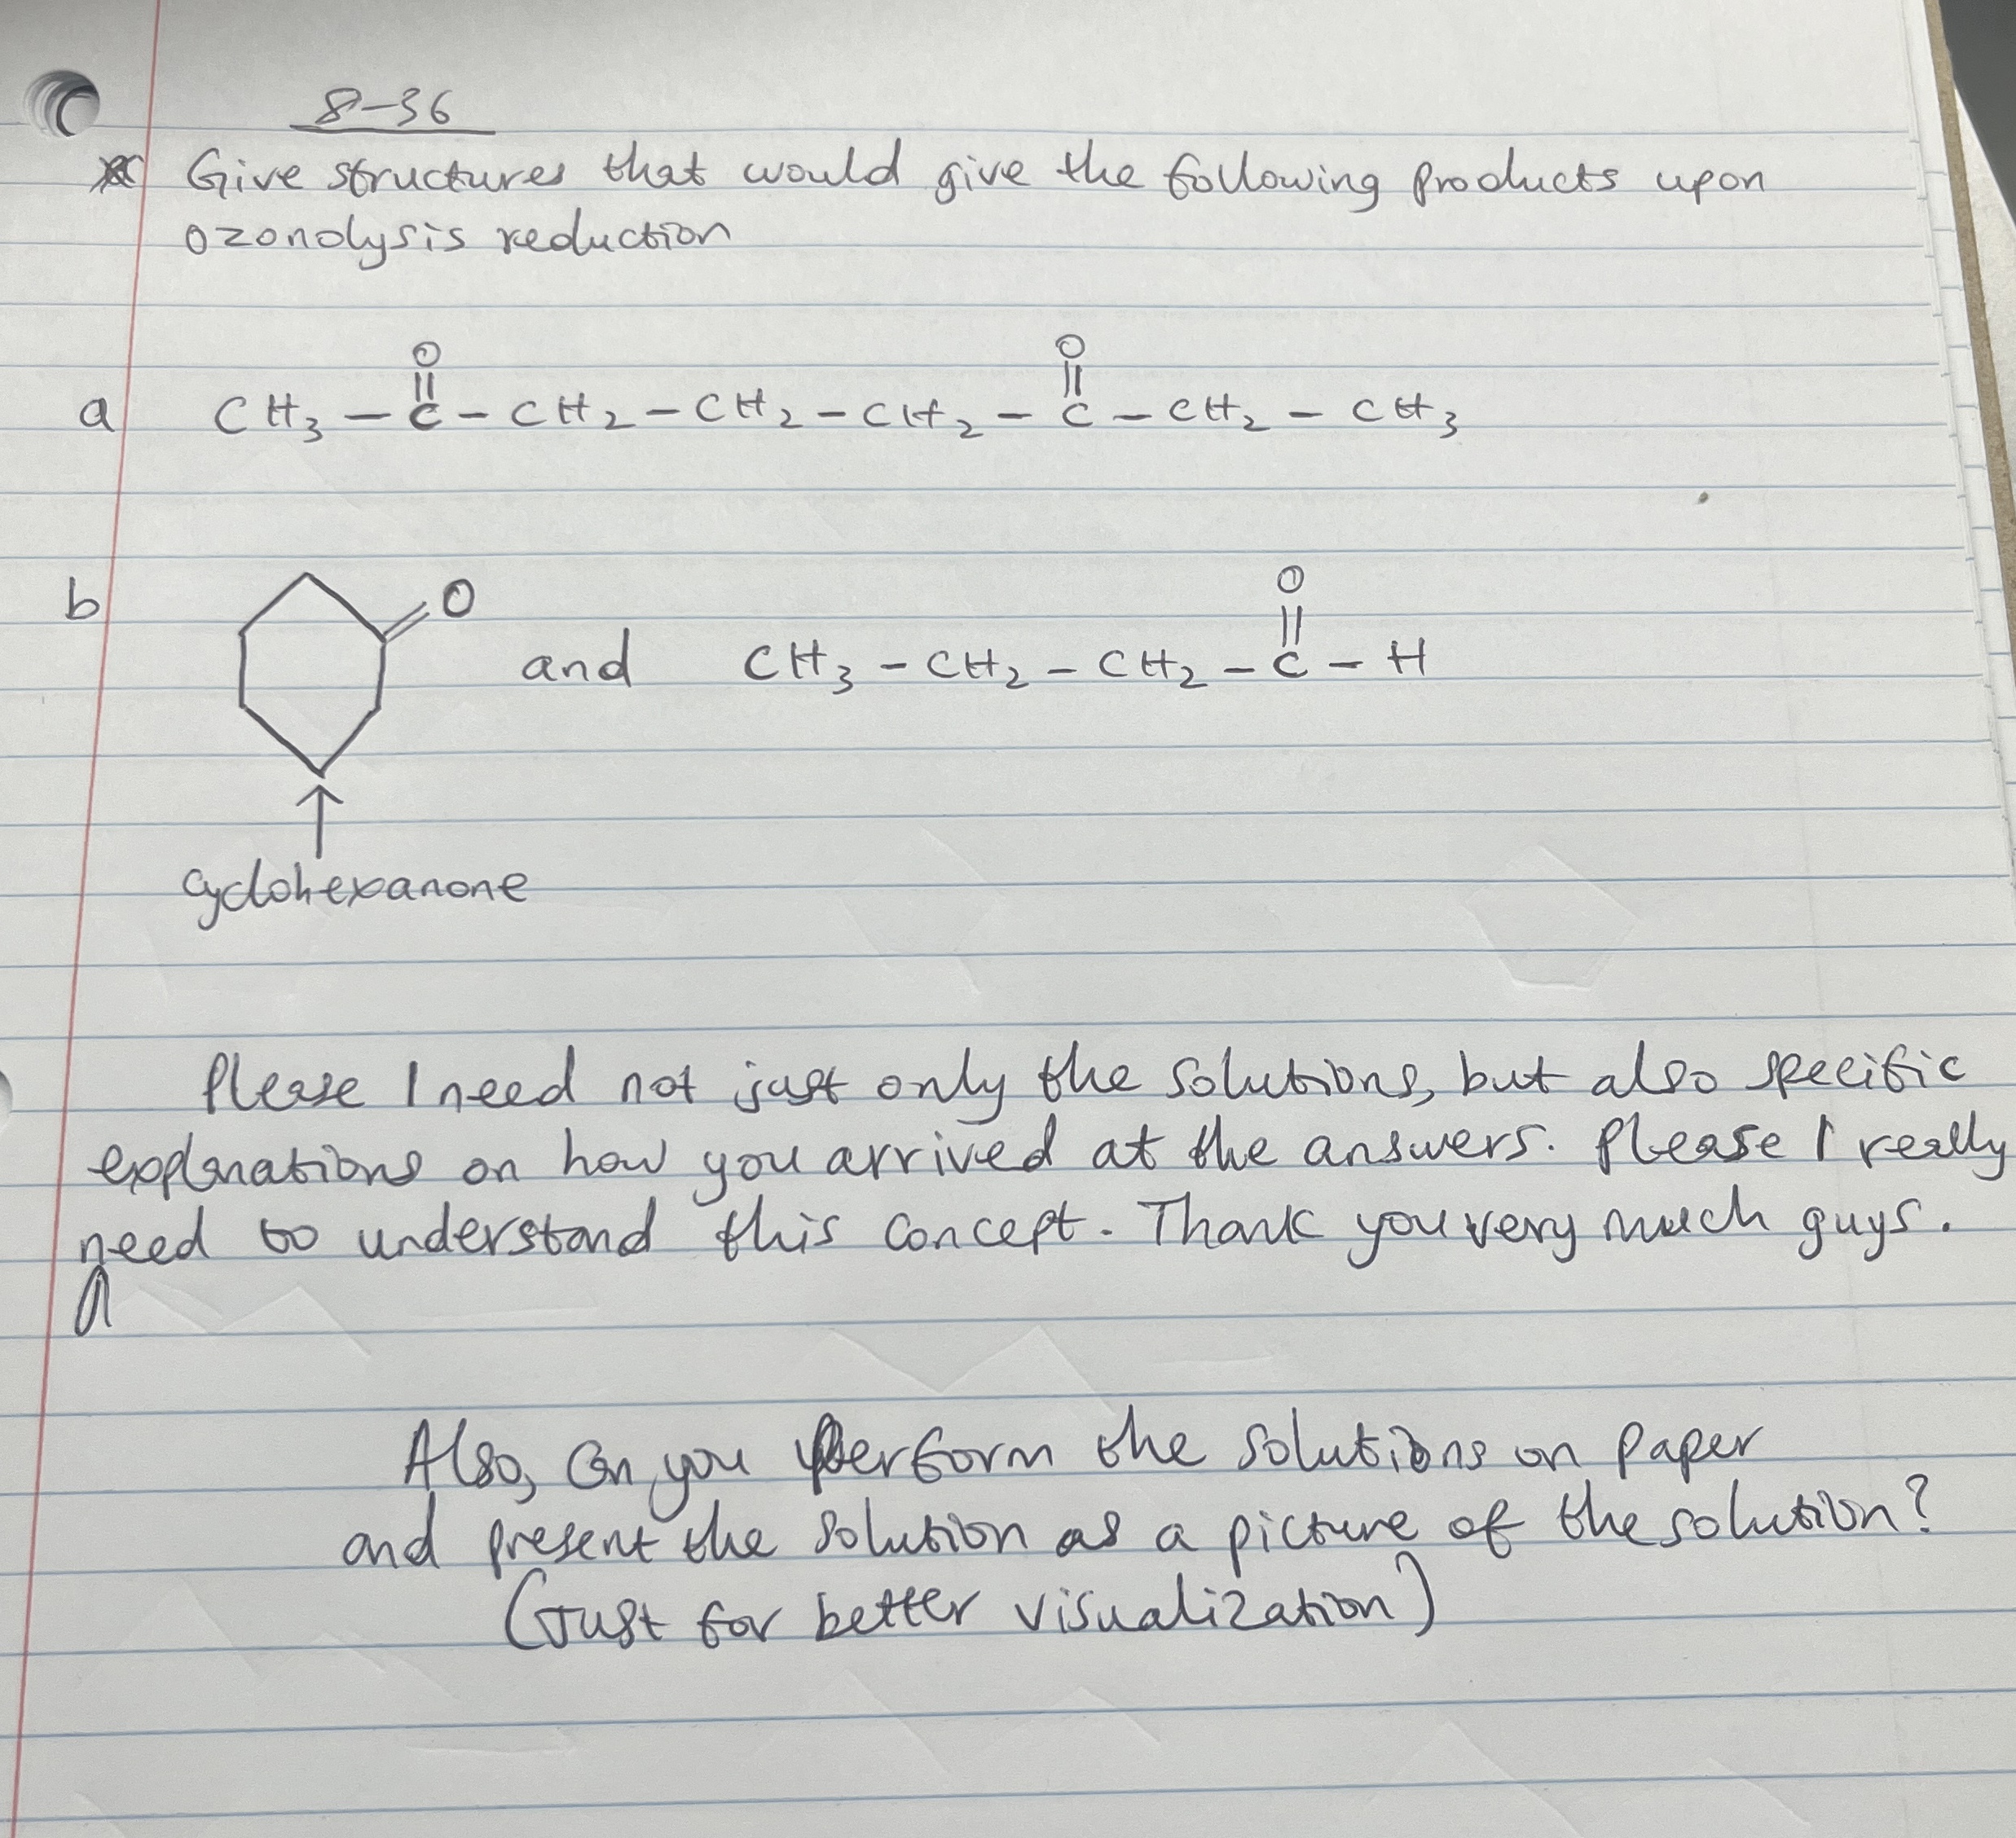 8-36
Give structures that would give the following products upon
ozonolysis reduction
a CH₃ - C(=O) - CH₂ - CH₂ - CH₂ - C(=O) - CH₂ - CH₃
b O and CH₃ - CH₂ - CH₂ - C(=O) - H
↑
cyclohexanone
Please I need not just only the solutions, but also specific
explanations on how you arrived at the answers. Please I really
need to understand this concept. Thank you very much guys.
Also, Can you perform the solutions on paper
and present the solution as a picture of the solution?
(Just for better visualization)